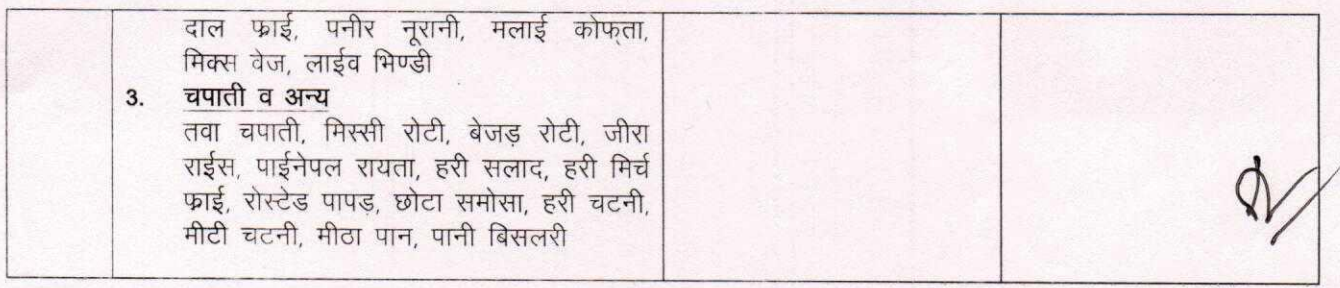 दाल फ्राई, पनीर नूरानी, मलाई कोफ्ता,
मिक्स वेज, लाईव भिण्डी
3. चपाती व अन्य
तवा चपाती, मिस्सी रोटी, बेजड़ रोटी, जीरा
राईस, पाईनेपल रायता, हरी सलाद, हरी मिर्च
फ्राई, रोस्टेड पापड़, छोटा समोसा, हरी चटनी,
मीटी चटनी, मीठा पान, पानी बिसलरी